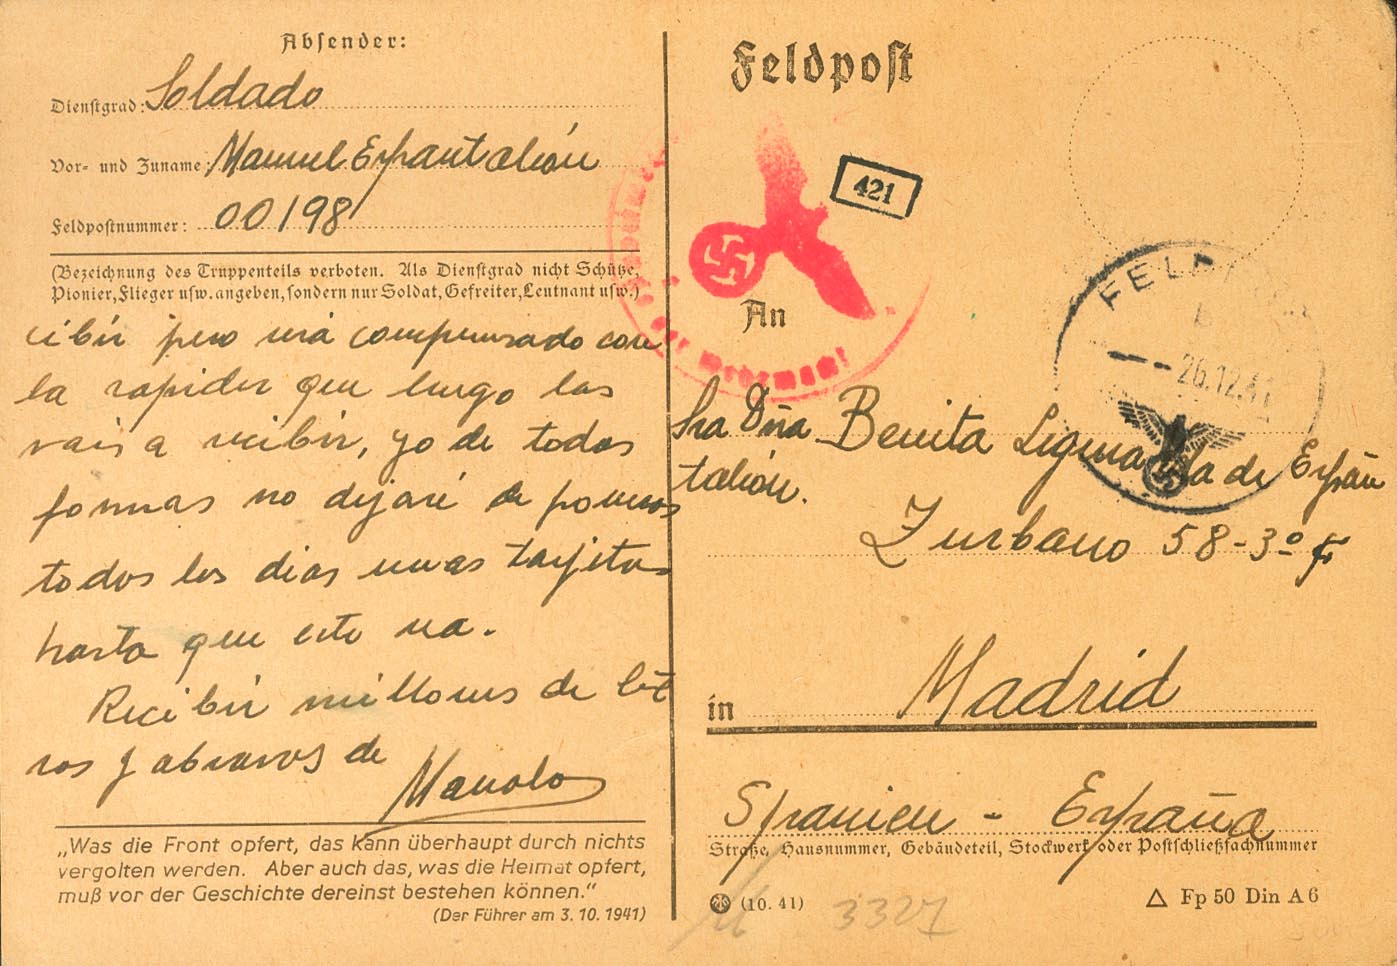 Absender:
Dienstgrad: Soldado
Vor- und Zuname: Manuel Españtalión
Feldpostnummer: 00198
(Bezeichnung des Truppenteils verboten. Als Dienstgrad nicht Schütze,
Pionier, Flieger usw. angeben, sondern nur Soldat, Gefreiter, Leutnant usw.)
cibir pero será compensado con
la rapidez que luego las
vais a recibir, yo de todas
formas no dejaré de poneros
todos los dias unas tarjetas
hasta que este va.
Recibir millones de bit
ros y abrazos de
Manolo
„Was die Front opfert, das kann überhaupt durch nichts
vergolten werden. Aber auch das, was die Heimat opfert,
muß vor der Geschichte dereinst bestehen können.“
(Der Führer am 3. 10. 1941)
Feldpost
421
der Wehrmacht
FELDPOST
26.12.41
An
Sra Dña Benita de Españ
talión.
Zurbano 58-3º
in Madrid
Spanien - España
Straße, Hausnummer, Gebäudeteil, Stockwerk oder Postschließfachnummer
(10. 41)
3327
Fp 50 Din A 6